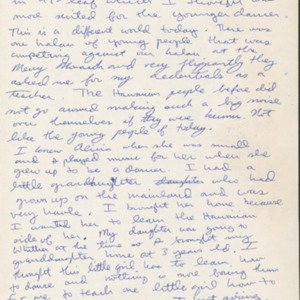 in
more suited for the younger dancer.
This is a different world today. There was
one halau of young people that was
competing against our halau at the
Merry Monarch and very flippantly they
asked me for my credentials as a
teacher. The Hawaiian people before did
not go around making such a big noise
over themselves if they were known not
like the young people of today.
I knew when she was small
and played music for her when she
grew up to be a dancer. I had a
little granddaughter who had
grown up on the mainland and was
very haole. I brought her home because
I wanted her to learn the Hawaiian
side of her. My daughter was going to
Whittier at the time so I brought my
granddaughter home at 3 years old. I
taught this little girl how to
to dance and nothing is more than
for me to teach one little girl how to